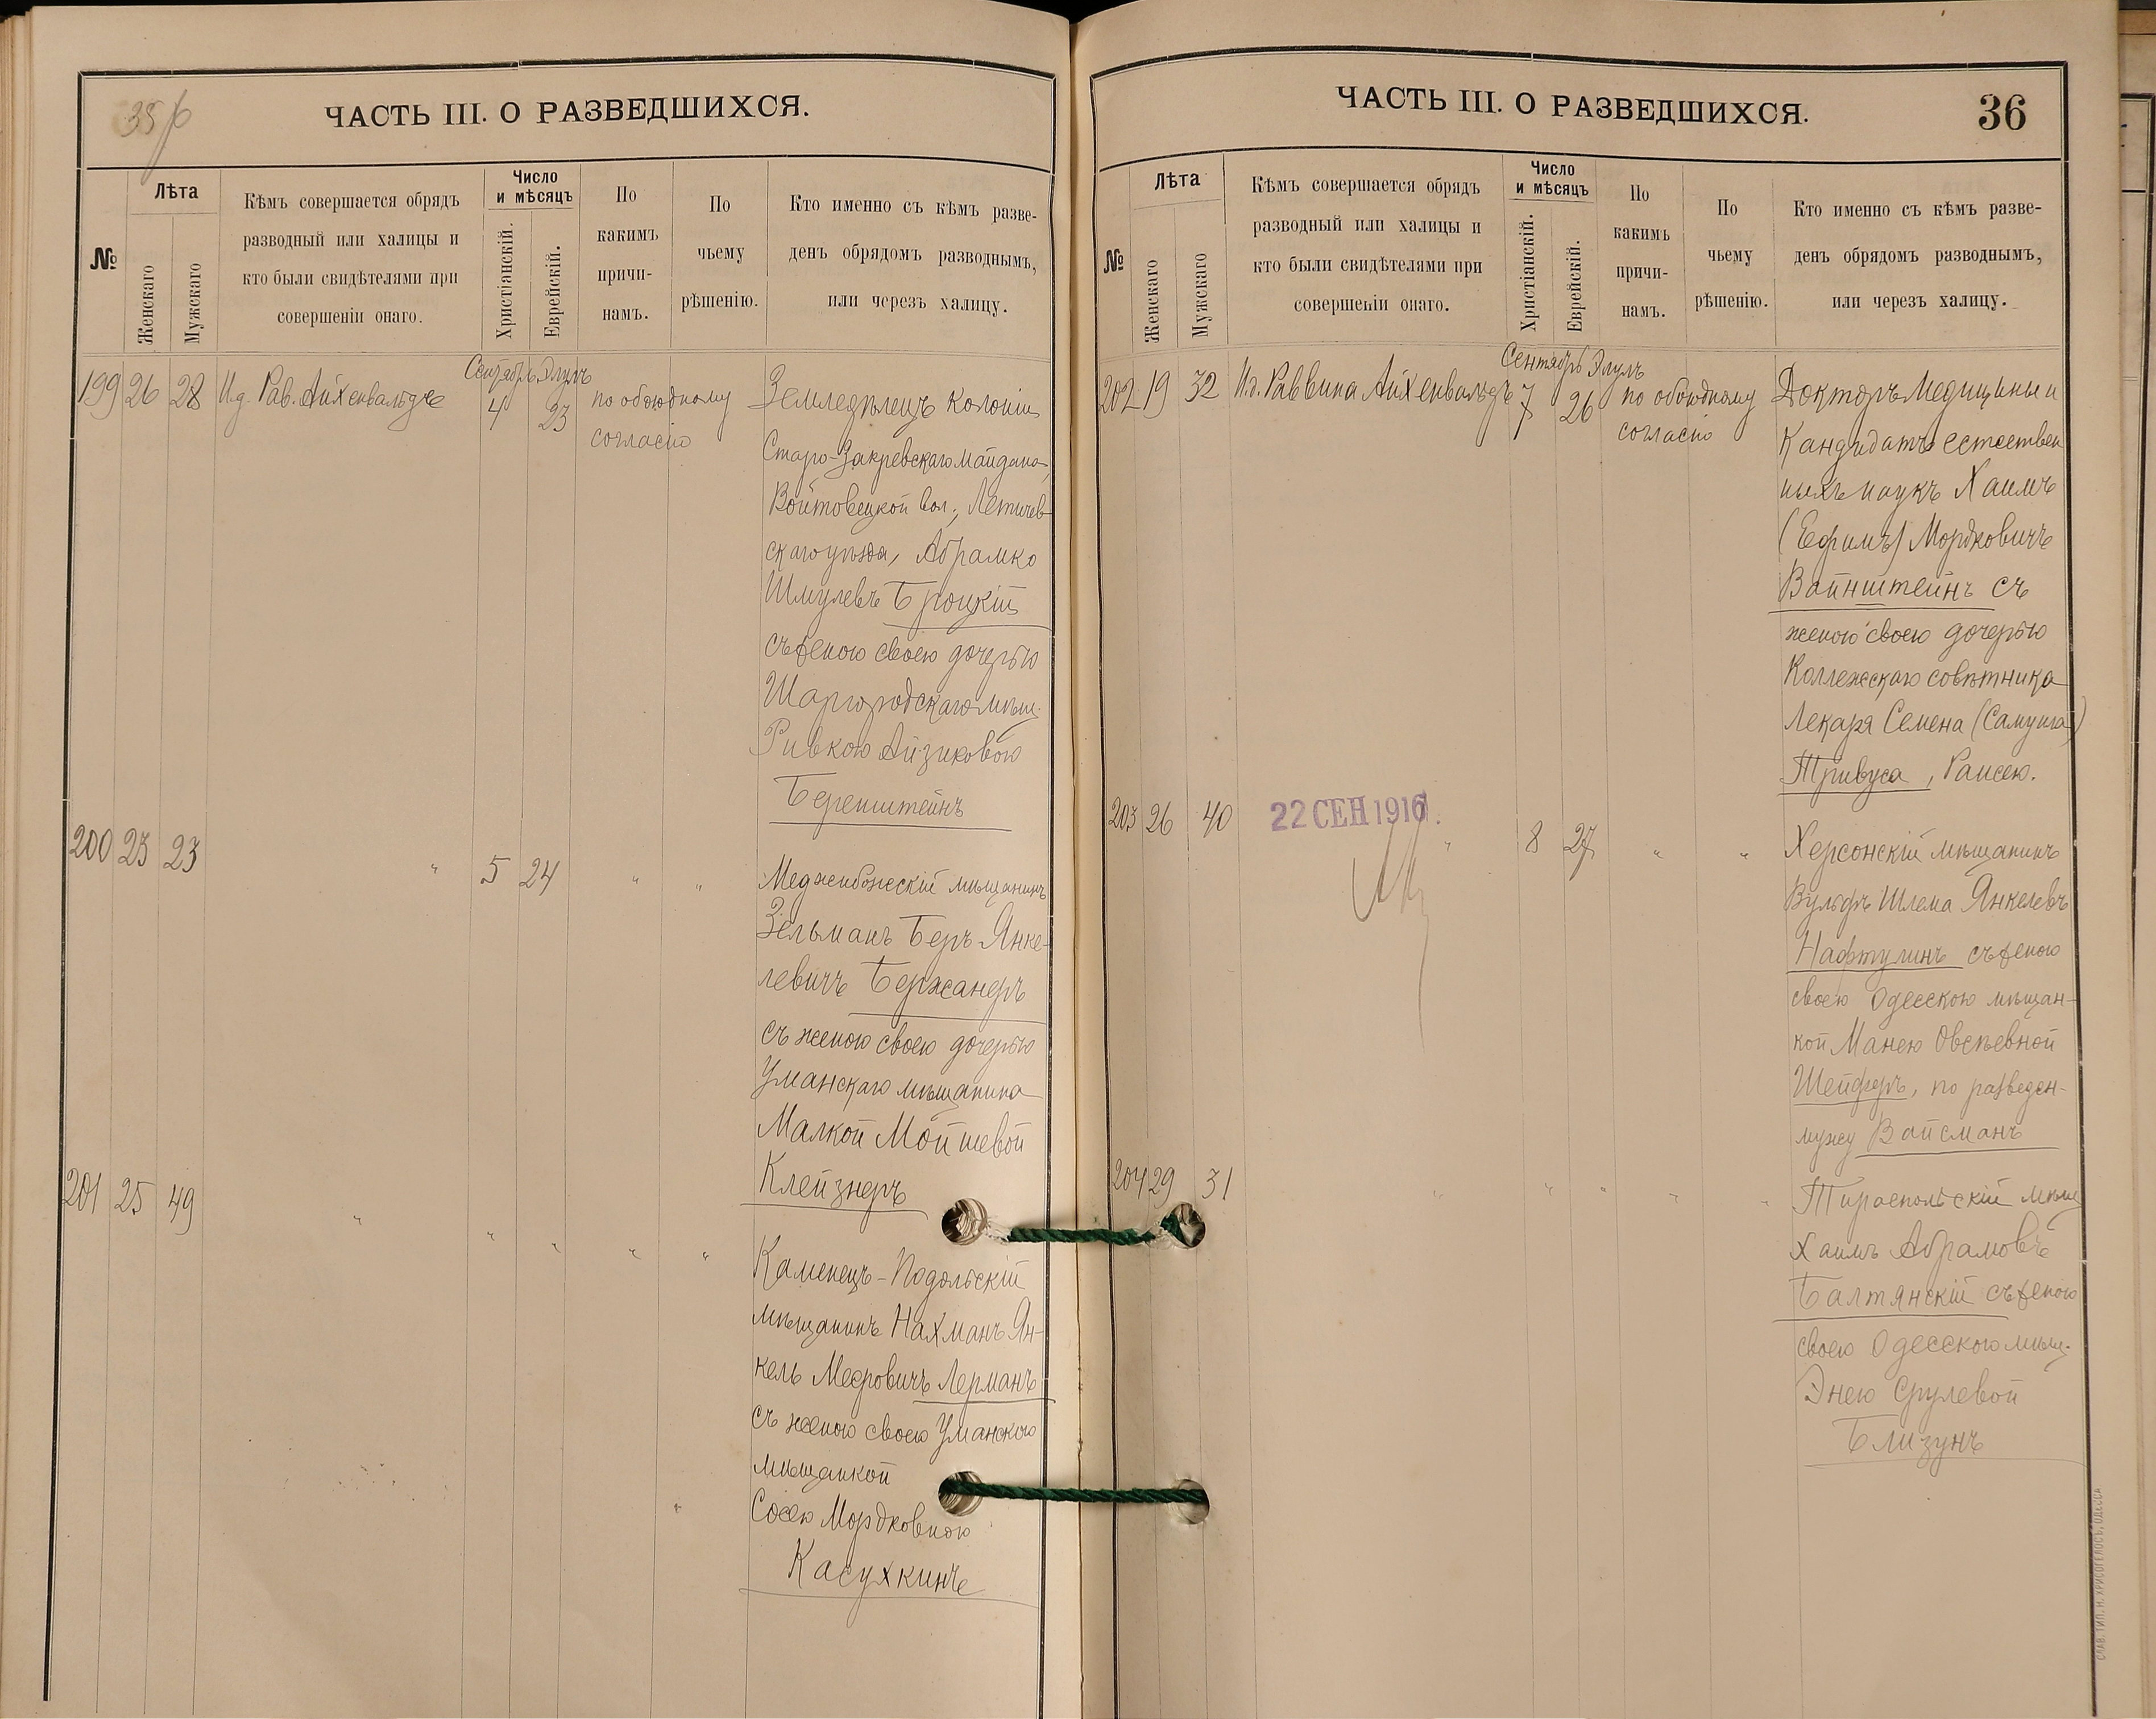 35 р
ЧАСТЬ III. О РАЗВЕДШИХСЯ.
№
Лѣта
Женскаго
Мужскаго
Кѣмъ совершается обрядъ
разводный или халицы и
кто были свидѣтелями при
совершеніи онаго.
Число
и мѣсяцъ
Христіанскій.
Еврейскій.
По
какимъ
причи-
намъ.
По
чьему
рѣшенію.
Кто именно съ кѣмъ разве-
денъ обрядомъ разводнымъ,
или черезъ халицу.
199 26 28 И.д. Рав. Айхенвальдъ
Сентябрь Элулъ
4 23
по обоюдному
согласію
Земледѣлецъ колоніи
Старо-Закревскаго Майдана,
Войтовецкой вол., Летичев-
скаго уѣзда, Абрамко
Шмулевъ Броцкій
съ женою своею дочерью
Шаргородскаго мѣщ.
Ривкою Айзиковою
Беренштейнъ
200 23 23 " 5 24 " "
Меджибожскій мѣщанинъ
Зельманъ Беръ Янке-
левичъ Бержанеръ
съ женою своею дочерью
Уманскаго мѣщанина
Малкой Мойшевой
Клейзнеръ
201 25 49 " " " " "
Каменецъ-Подольскій
мѣщанинъ Нахманъ Ян-
кель Мееровичъ Лерманъ
съ женою своею Уманскою
мѣщанкой
Сосею Мордковною
Касухкинъ
ЧАСТЬ III. О РАЗВЕДШИХСЯ.
36
№
Лѣта
Женскаго
Мужскаго
Кѣмъ совершается обрядъ
разводный или халицы и
кто были свидѣтелями при
совершеніи онаго.
Число
и мѣсяцъ
Христіанскій.
Еврейскій.
По
какимъ
причи-
намъ.
По
чьему
рѣшенію.
Кто именно съ кѣмъ разве-
денъ обрядомъ разводнымъ,
или черезъ халицу.
202 19 32 И.д. Раввина Айхенвальдъ
Сентябрь Элулъ
7 26
по обоюдному
согласію
Докторъ Медицины и
Кандидатъ естествен
ныхъ наукъ Хаимъ
(Ефимъ) Мордковичъ
Вайнштейнъ съ
женою своею дочерью
Коллежскаго совѣтника
Лекаря Семена (Самуила)
Тривуса, Раисею.
22 СЕН 1916.
203 26 40 " 8 27 " "
Херсонскій мѣщанинъ
Вульфъ Шлема Янкелевъ
Нафтулинъ съ женою
своею Одесскою мѣщан-
кой Манею Овсѣевной
Шейферъ, по разведен-
мужу Вайсманъ
204 29 31 " " " " "
Тираспольскій мѣщ
Хаимъ Абрамовъ
Балтянскій съ женою
своею Одесскою мѣщ.
Энею Срулевой
Близунъ
СЛАВ. ТИП. Н. ХРИСОГЕЛОСЪ, ОДЕССА